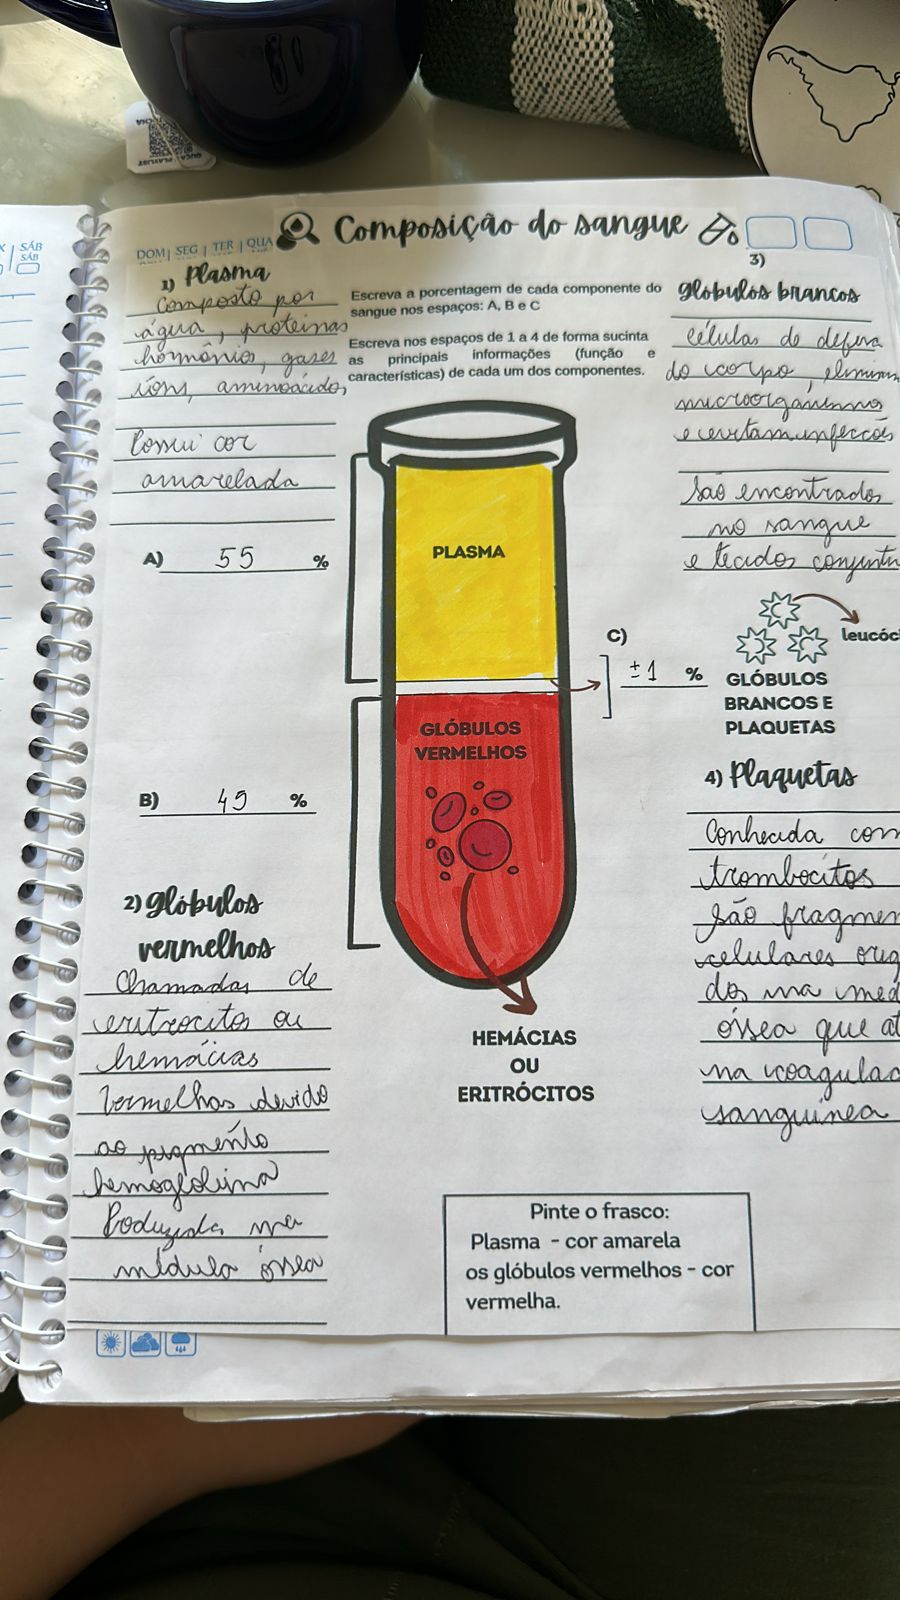 SÁB
SÁB
DOM SEG TER QUA
Composição do sangue
1) Plasma
Composto por
água, proteínas
hormônios, gases
íons, aminoácidos,
Possui cor
amarelada
A) 55 %
Escreva a porcentagem de cada componente do
sangue nos espaços: A, B e C
Escreva nos espaços de 1 a 4 de forma sucinta
as principais informações (função e
características) de cada um dos componentes.
3)
glóbulos brancos
células de defesa
do corpo, eliminam
microorganismos
e evitam infecções
São encontrados
no sangue
e tecidos conjunti
PLASMA
C)
±1 %
leucóc
GLÓBULOS
BRANCOS E
PLAQUETAS
GLÓBULOS
VERMELHOS
B) 45 %
2) glóbulos
vermelhos
Chamadas de
eritrocitos ou
hemácias
Vermelhas devido
ao pigmento
hemoglobina
Produzida na
médula óssea
HEMÁCIAS
OU
ERITRÓCITOS
4) Plaquetas
Conhecida com
trombocitos
São fragmen
celulares orig
dos na med
óssea que at
na coagulac
sanguínea
Pinte o frasco:
Plasma - cor amarela
os glóbulos vermelhos - cor
vermelha.